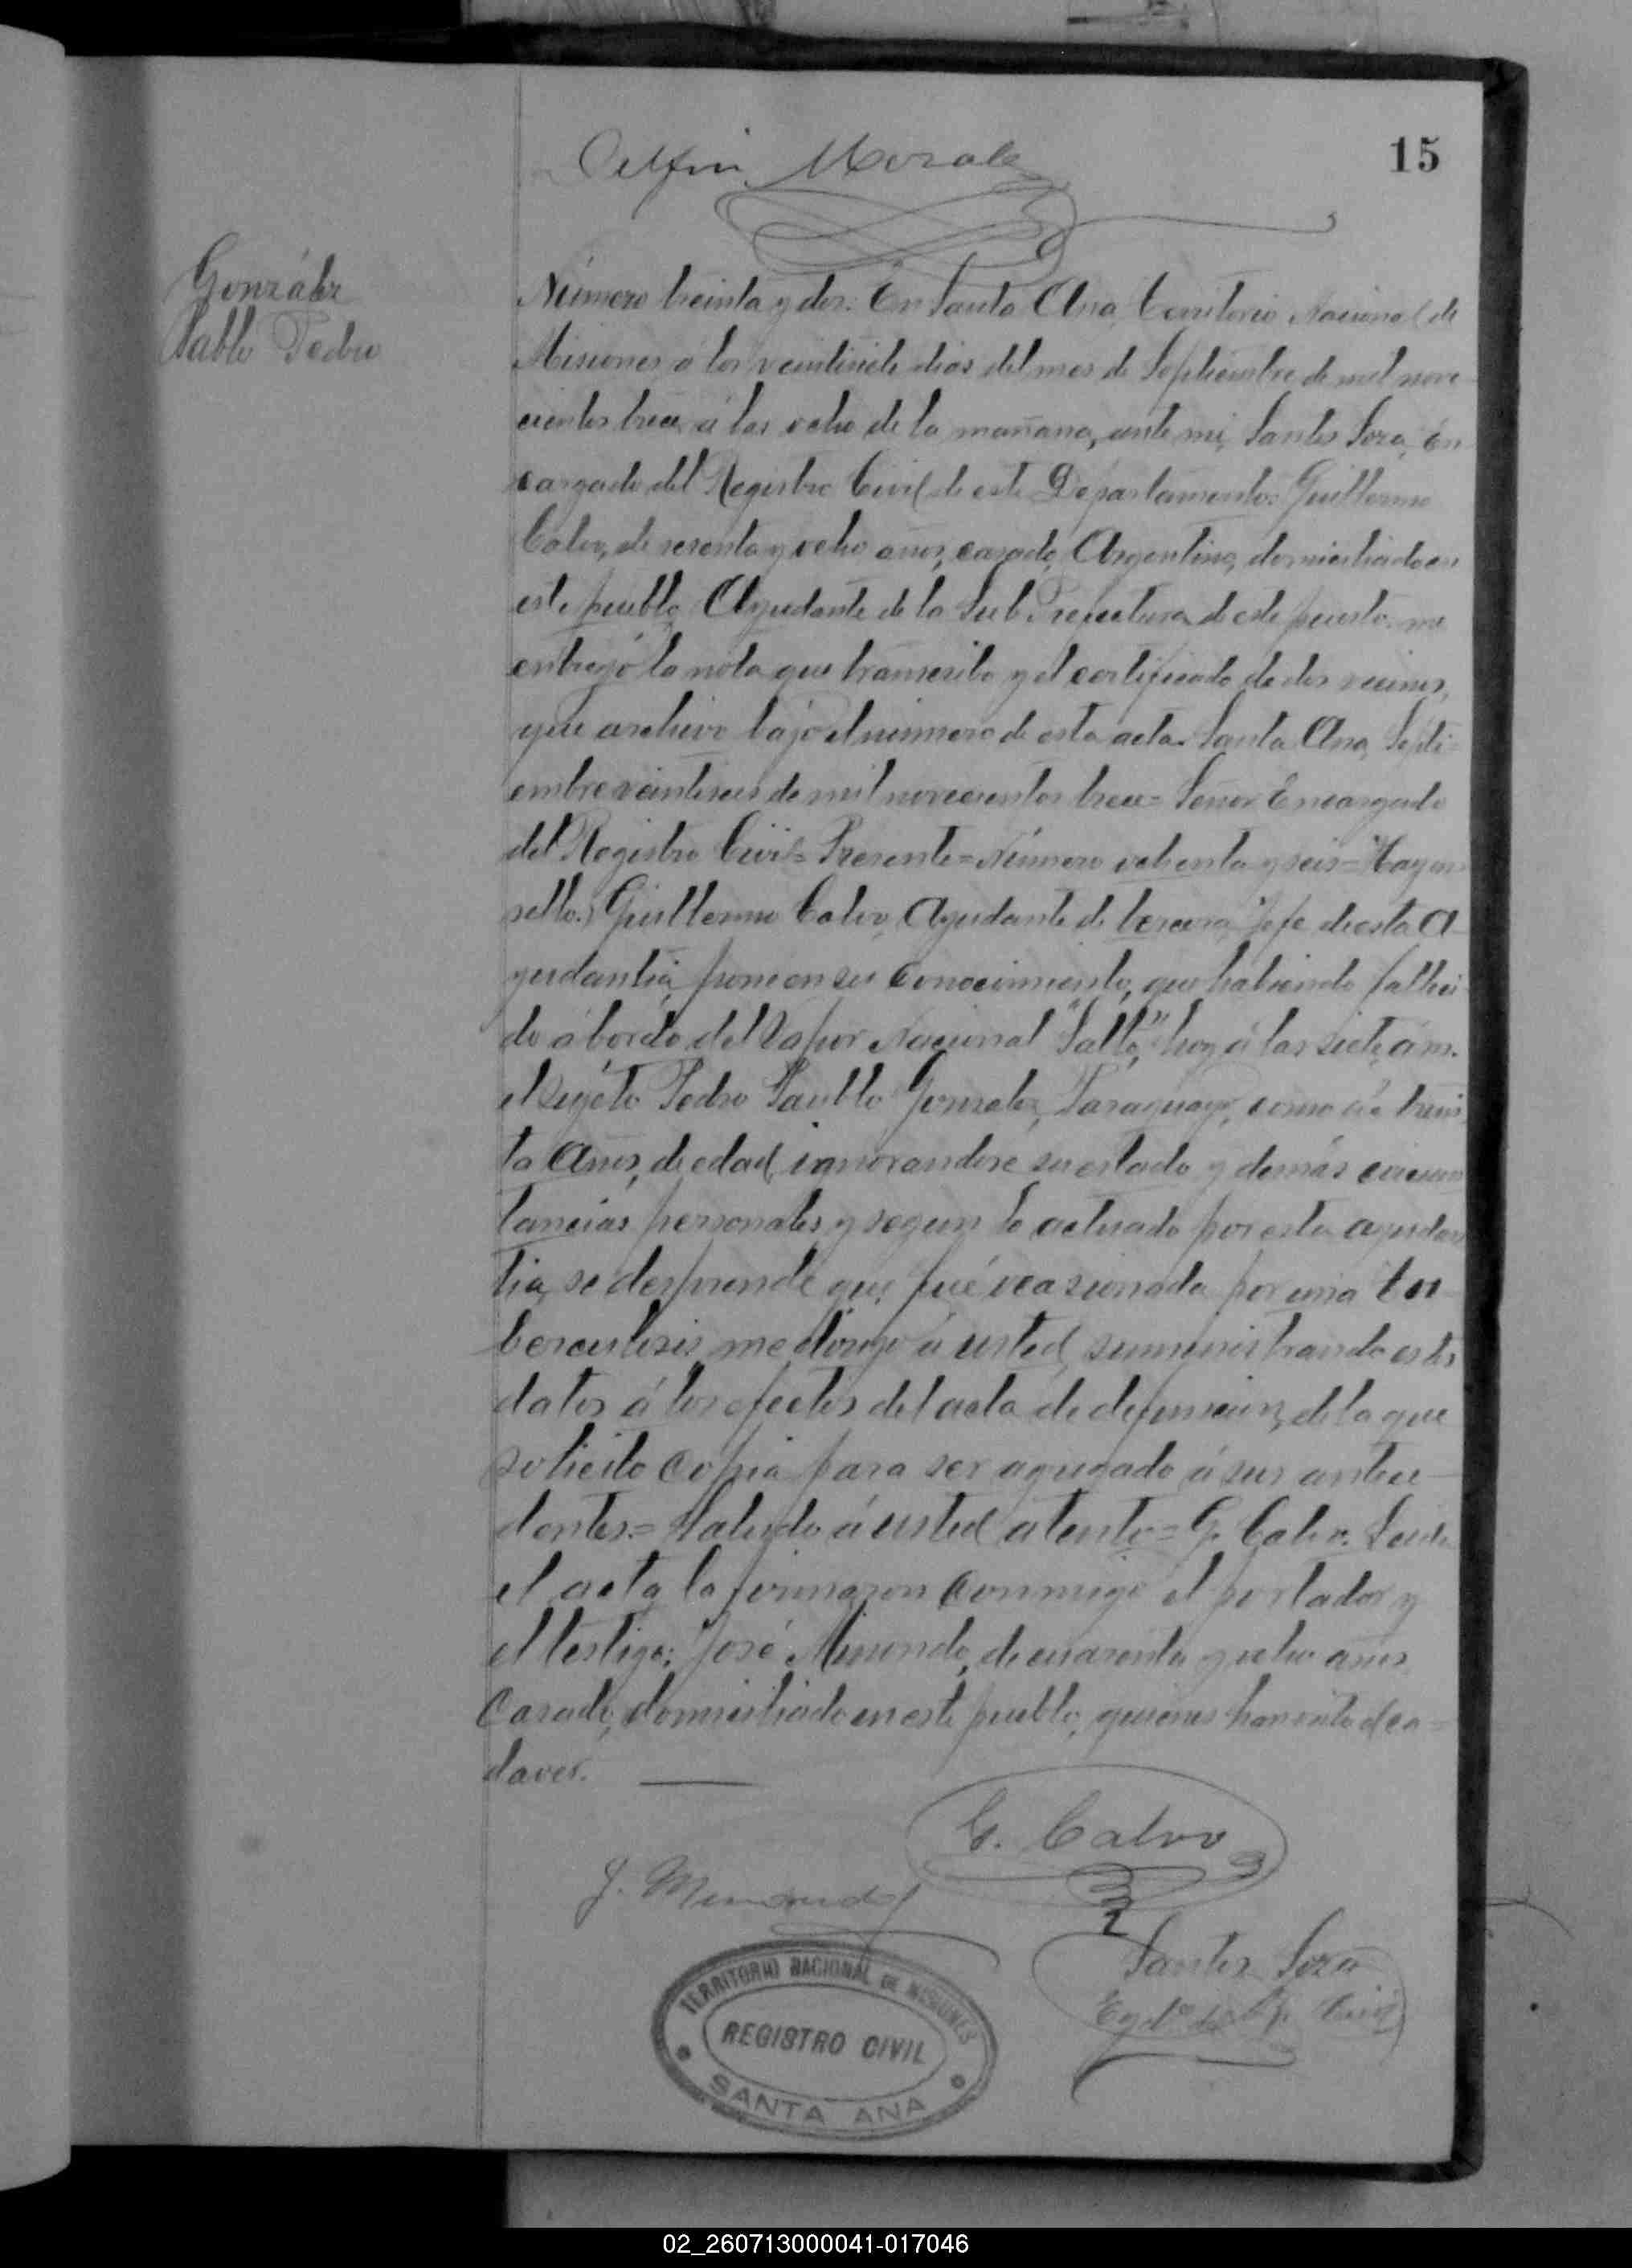 15
Delfin Morales
González
Pablo Pedro
Número treinta y dos: En Santa Ana, territorio Nacional de
Misiones á los veintisiete dias del mes de Septiembre de mil nove-
cientos trece, á las ocho de la mañana, ante mi, Santos Soza, En
cargado del Registro Civil de este Departamento: Guillermo
Calvo, de sesenta y ocho años, casado, Argentino, domiciliado en
este pueblo, Ayudante de la Sub Prefectura de este puerto me
entregó la nota que transcribo y el certificado de dos vecinos,
que archivo bajo el número de esta acta. Santa Ana, Septi=
embre veintiseis de mil novecientos trece= Señor Encargado
del Registro Civil= Presente= Número ochenta y seis= "Hay un
sello.) Guillermo Calvo, Ayudante de tercera, Jefe de esta A-
yudantia, pone en su conocimiento, que habiendo falleci
do á bordo del Vapor Nacional "Salto," hoy á las siete, á m.
el sugeto Pedro Paublo Gonzalez, Paraguayo, como de trein
ta Años, de edad, ignorandose su estado y demás circuns
tancias personales y segun lo actuado por esta ayudan
tia, se desprende que fué ocasionada por una tu-
berculosis, me dirijo á usted, suministrando estos
datos á los efectos del acta de defuncion, de la que
solicito copia para ser agregado á sus antece-
dentes.= Saludo á usted atento= G. Calvo. Leida
el acta, la firmaron conmigo el portador y
el testigo: José Minondo, de cuarenta y ocho años
Casado, domiciliado en este pueblo, quienes han visto el ca=
daver.
G. Calvo
J. Minondo
Santos Soza
TERRITORIO NACIONAL DE MISIONES
REGISTRO CIVIL
SANTA ANA
02_260713000041-017046